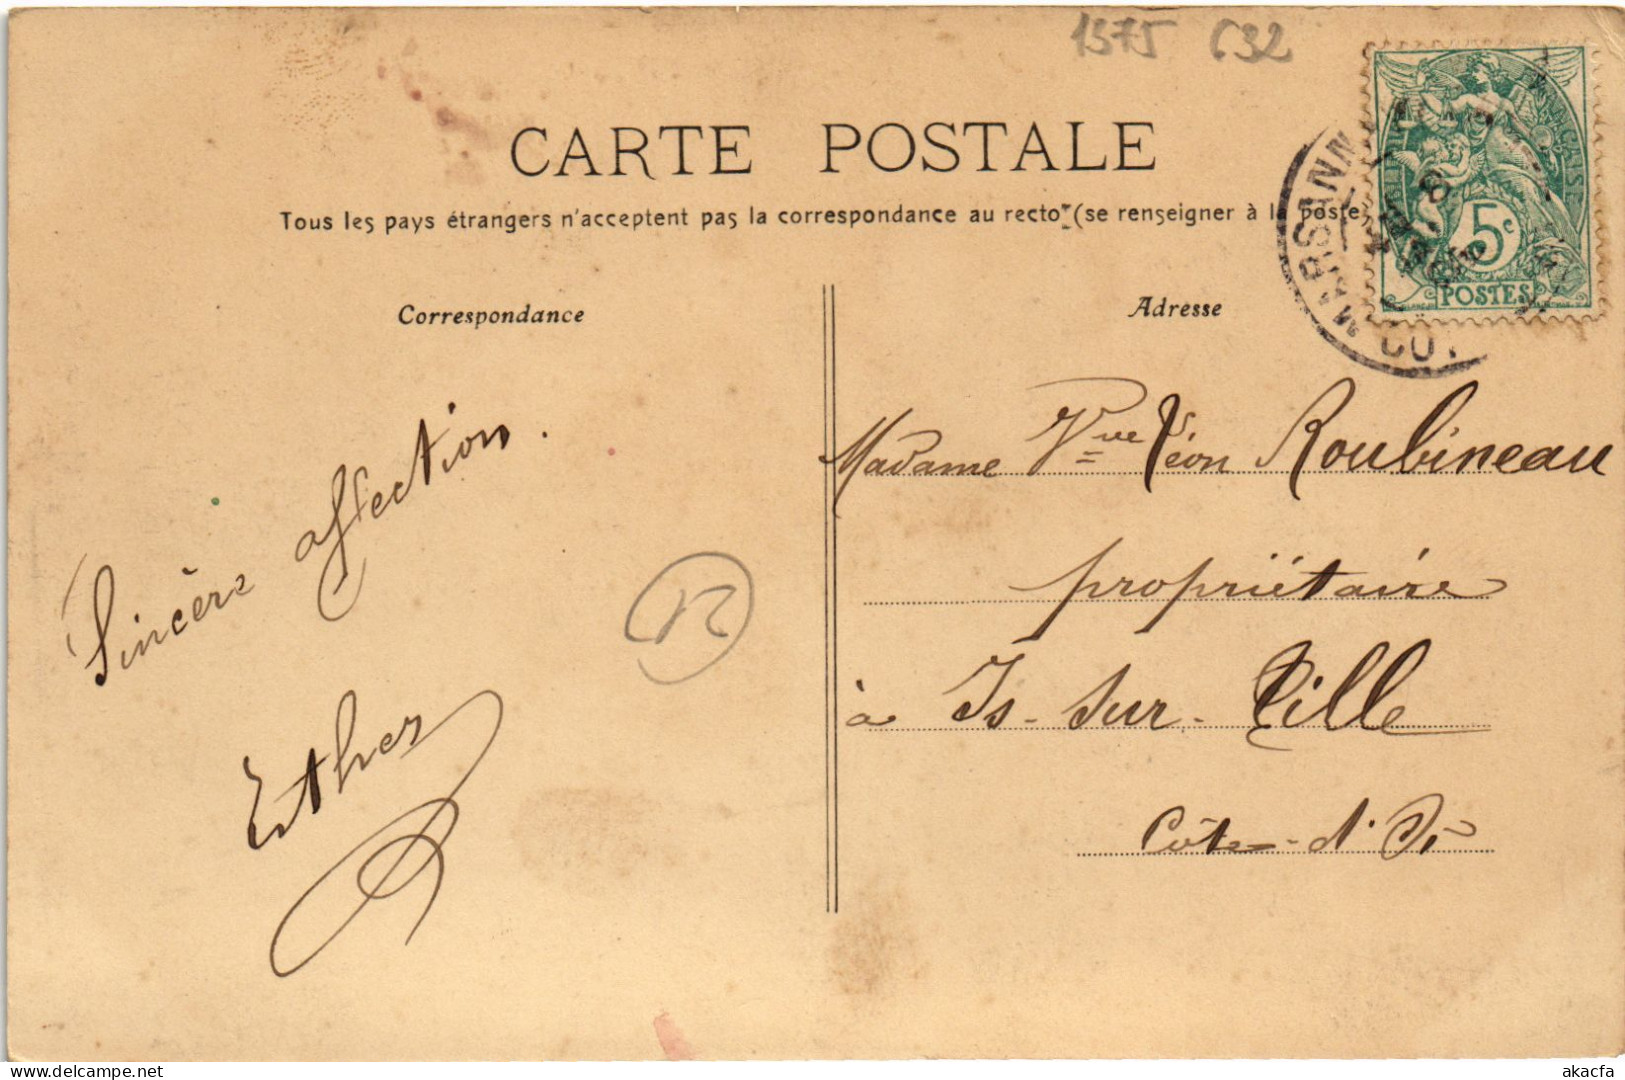 1375 C32
CARTE POSTALE
Tous les pays étrangers n'acceptent pas la correspondance au recto (se renseigner à la poste)
Correspondance
Adresse
5c
POSTES
MARSANN
CÔT
Sincère affection.
Esther
R
Madame Vve Léon Roubineau
propriétaire
à Is-sur-Tille
Côte-d'Or
akacfa